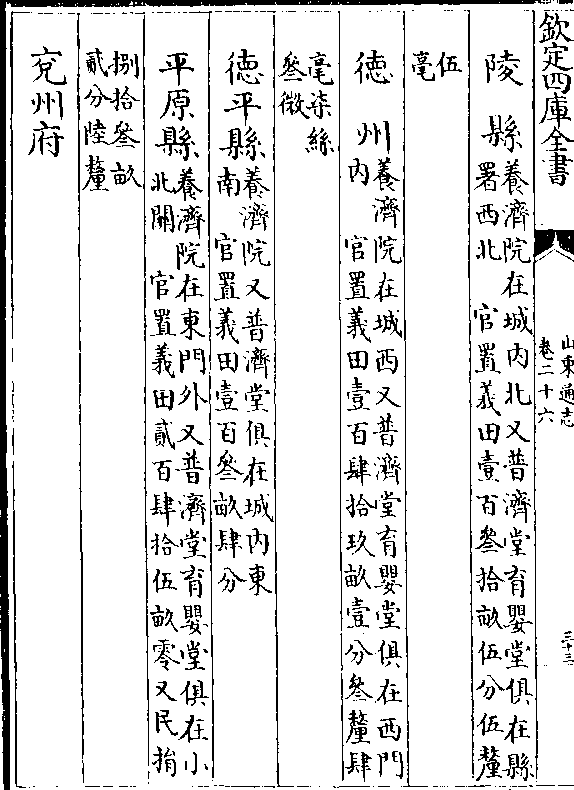 欽定四庫全書
山東通志
卷二十六
三十三
陵縣養濟院在城內北又普濟堂育嬰堂俱在縣
署西北 官置義田壹百叁拾畝伍分伍釐
伍
毫
德州養濟院在城西又普濟堂育嬰堂俱在西門
內 官置義田壹百肆拾玖畝壹分叁釐肆
毫柒絲
叁微
德平縣養濟院又普濟堂俱在城內東
南 官置義田壹百叁畝肆分
平原縣養濟院在東門外又普濟堂育嬰堂俱在小
北關 官置義田貳百肆拾伍畝零又民捐
捌拾叁畝
貳分陸釐
兗州府